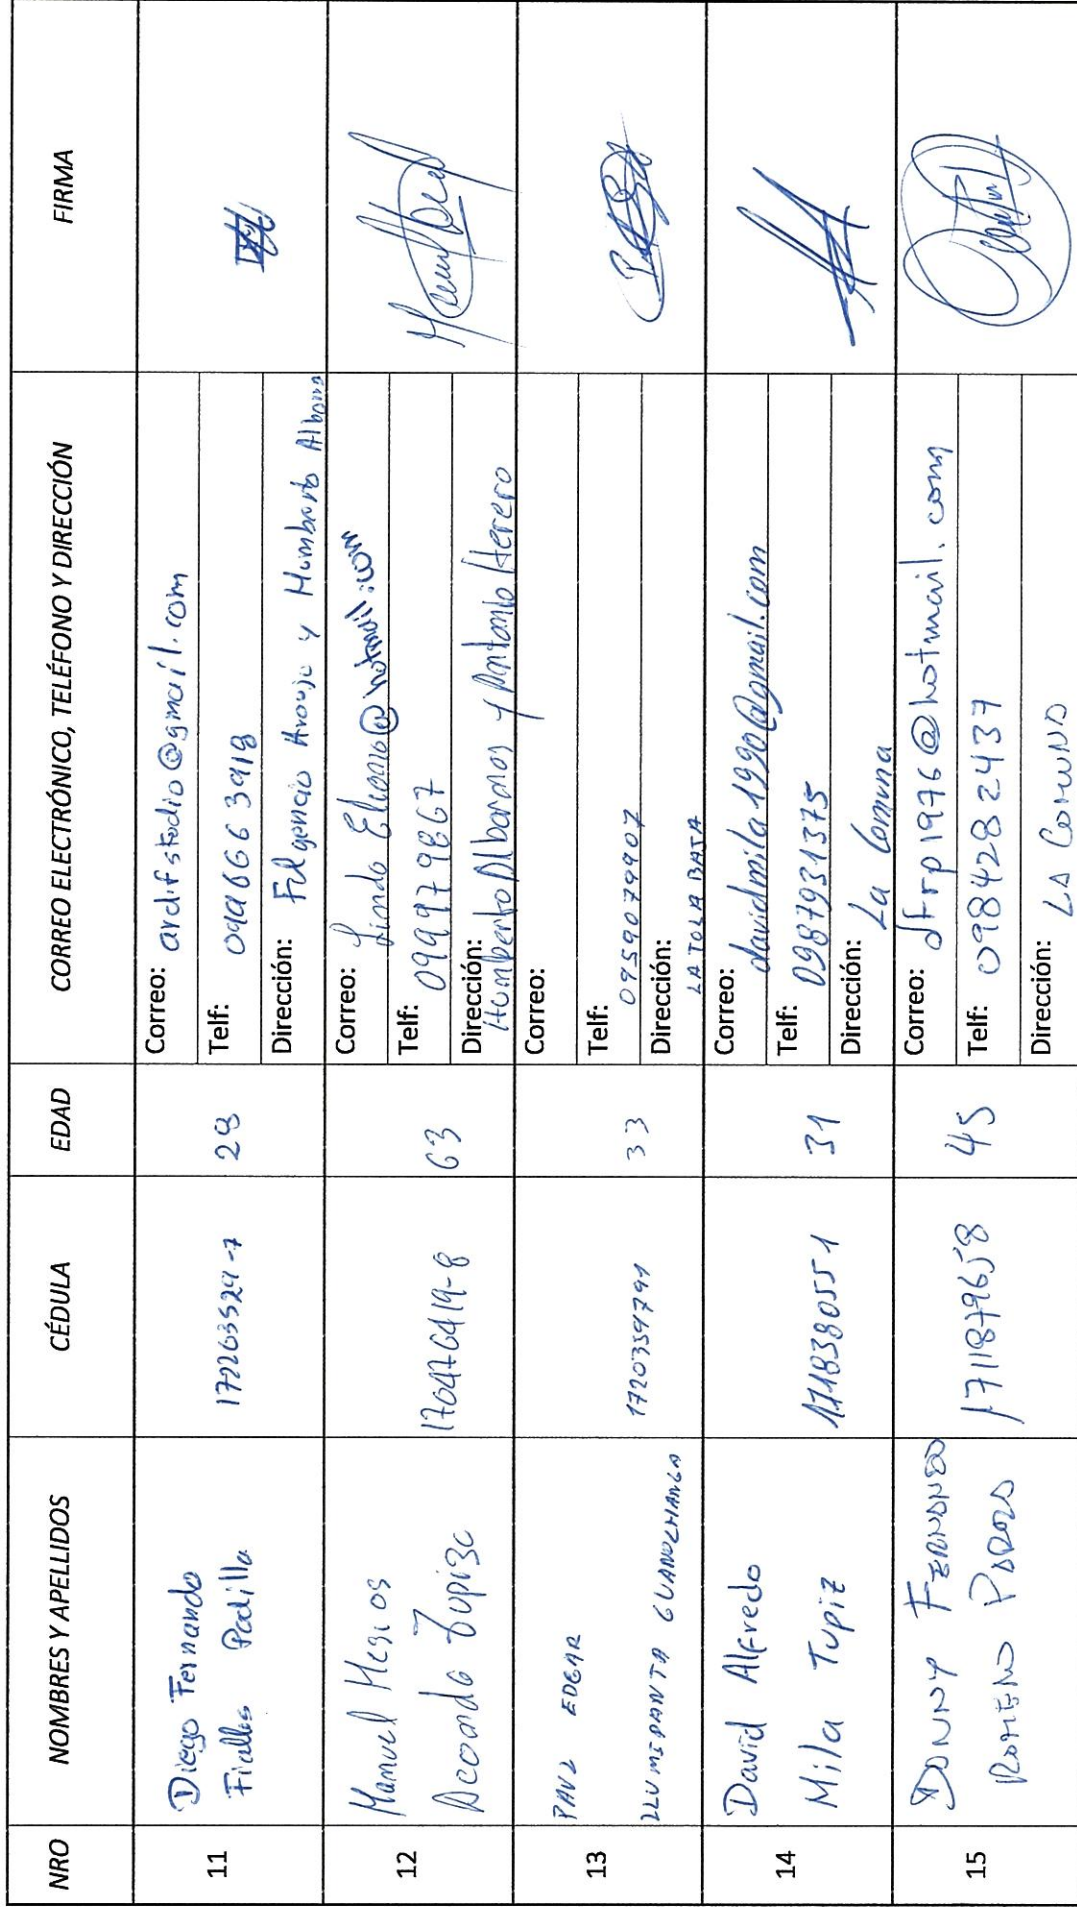 NRO NOMBRES Y APELLIDOS CÉDULA EDAD CORREO ELECTRÓNICO, TELÉFONO Y DIRECCIÓN FIRMA
11
Diego Fernando
Fiallos Padilla
28
Correo: ardifstudio@gmail.com
Telf: 0996663918
Dirección: y Humberto
12
Manuel Mesias
63
Correo: @hotmail.com
Telf: 0999979867
Dirección: Humberto Albornoz y Antonio Herrero
13
PAUL EDGAR
LLUMIPANTA GUANOCHANGA
1720359791
33
Correo:
Telf: 0959079907
Dirección: LA TOLA BAJA
14
David Alfredo
Mila Tupiz
1718380551
31
Correo: davidmila1990@gmail.com
Telf: 0987931375
Dirección: La Comuna
15
DANNY FERNANDO
ROMERO PARDO
1711879658
45
Correo: dfrp1976@hotmail.com
Telf: 0984282437
Dirección: LA COMUNA